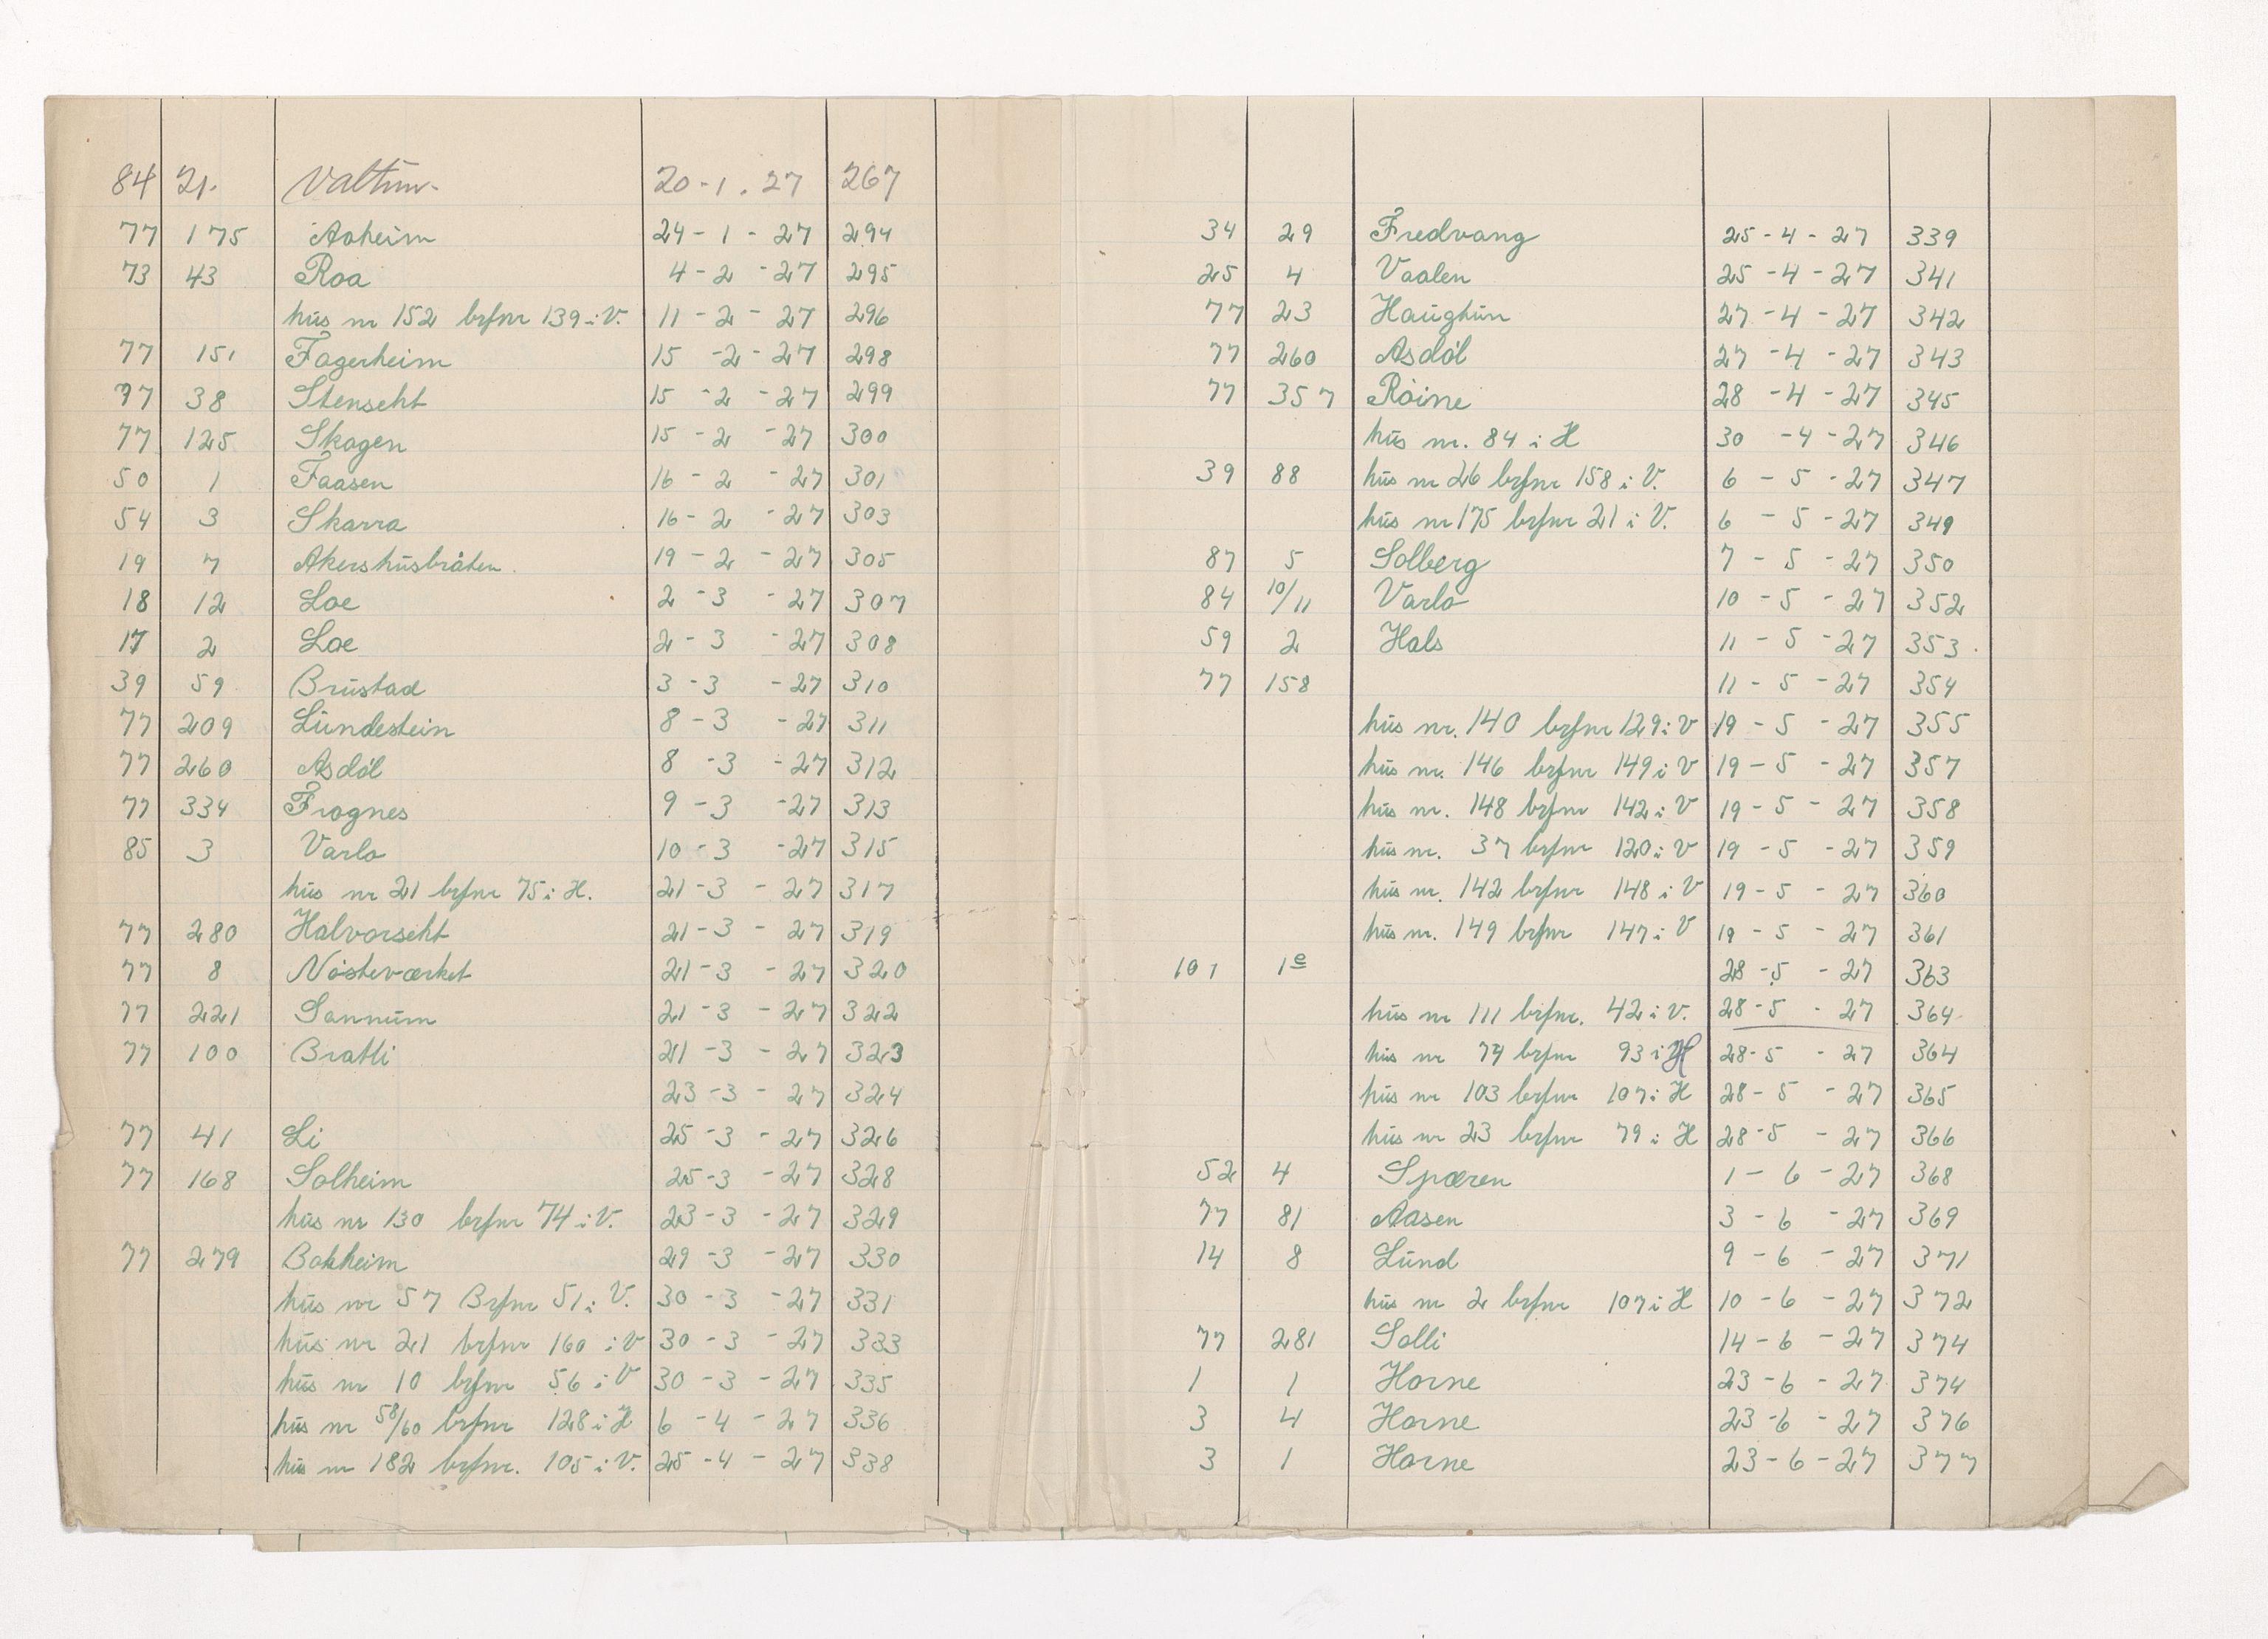 84 21. Valtun. 20-1.27 267
77 175 Aaheim 24-1-27 294
73 43 Roa 4-2-27 295
hus nr 152 brfnr 139 i V. 11-2-27 296
77 151 Fagerheim 15-2-27 298
77 38 Stenseht 15-2-27 299
77 125 Skogen 15-2-27 300
50 1 Faasen 16-2-27 301
54 3 Skarra 16-2-27 303
19 7 Akershusbråten. 19-2-27 305
18 12 Loe 2-3-27 307
17 2 Loe 2-3-27 308
39 59 Brustad 3-3-27 310
77 209 Lundestein 8-3-27 311
77 260 Asdøl 8-3-27 312
77 334 Frognes 9-3-27 313
85 3 Varlo 10-3-27 315
hus nr 21 brfnr 75 i H. 21-3-27 317
77 280 Halvorseht 21-3-27 319
77 8 Nösteværket 21-3-27 320
77 221 Sannum 21-3-27 322
77 100 Bratli 21-3-27 323
23-3-27 324
77 41 Li 25-3-27 326
77 168 Solheim 25-3-27 328
hus nr 130 brfnr 74 i V. 23-3-27 329
77 279 Bakheim 29-3-27 330
hus nr 57 Brfnr 51 i V. 30-3-27 331
hus nr 21 brfnr 160 i V 30-3-27 333
hus nr 10 brfnr 56 i V 30-3-27 335
hus nr 58/60 brfnr 128 i H 6-4-27 336
hus nr 182 brfnr. 105 i V. 25-4-27 338
34 29 Fredvang 25-4-27 339
25 4 Vaalen 25-4-27 341
77 23 Haugtun 27-4-27 342
77 260 Asdøl 27-4-27 343
77 357 Röine 28-4-27 345
hus nr. 84 i H 30-4-27 346
39 88 hus nr 26 brfnr 158 i V. 6-5-27 347
hus nr 175 brfnr 21 i V. 6-5-27 349
87 5 Solberg 7-5-27 350
84 10/11 Varlo 10-5-27 352
59 2 Hals 11-5-27 353.
77 158 11-5-27 354
hus nr. 140 brfnr 129 i V 19-5-27 355
hus nr. 146 brfnr 149 i V 19-5-27 357
hus nr. 148 brfnr 142 i V 19-5-27 358
hus nr. 37 brfnr 120 i V 19-5-27 359
hus nr. 142 brfnr 148 i V 19-5-27 360
hus nr. 149 brfnr 147 i V 19-5-27 361
101 1e 28-5-27 363
hus nr 111 brfnr. 42 i V. 28-5-27 364
hus nr 74 brfnr 93 i H 28-5-27 364
hus nr 103 brfnr 107 i H 28-5-27 365
hus nr 23 brfnr 79 i H 28-5-27 366
52 4 Spæren 1-6-27 368
77 81 Aasen 3-6-27 369
14 8 Lund 9-6-27 371
hus nr 2 brfnr 107 i H 10-6-27 372
77 281 Solli 14-6-27 374
1 1 Horne 23-6-27 374
3 4 Horne 23-6-27 376
3 1 Horne 23-6-27 377